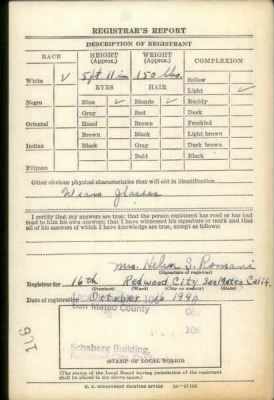 REGISTRAR'S REPORT
DESCRIPTION OF REGISTRANT
RACE
HEIGHT (Approx.)
WEIGHT (Approx.)
COMPLEXION
White ✓ 5 ft 11 in 150 lbs. Sallow
EYES HAIR Light ✓
Negro Blue ✓ Blonde ✓ Ruddy
Gray Red Dark
Oriental Hazel Brown Freckled
Brown Black Light brown
Indian Black Gray Dark brown
Bald Black
Filipino
Other obvious physical characteristics that will aid in identification
Wears Glasses
I certify that my answers are true; that the person registered has read or has had
read to him his own answers; that I have witnessed his signature or mark and that
all of his answers of which I have knowledge are true, except as follows:
Mrs Helen J.
(Signature of registrar)
Registrar for 16th Redwood City San Mateo Calif.
(Precinct) (City or county) (State)
Date of registration October 16 1940
San Mateo County
106
Schaberg Building,
Redwood City
(STAMP OF LOCAL BOARD)
(The stamp of the Local Board having jurisdiction of the registrant
shall be placed in the above space.)
U. S. GOVERNMENT PRINTING OFFICE